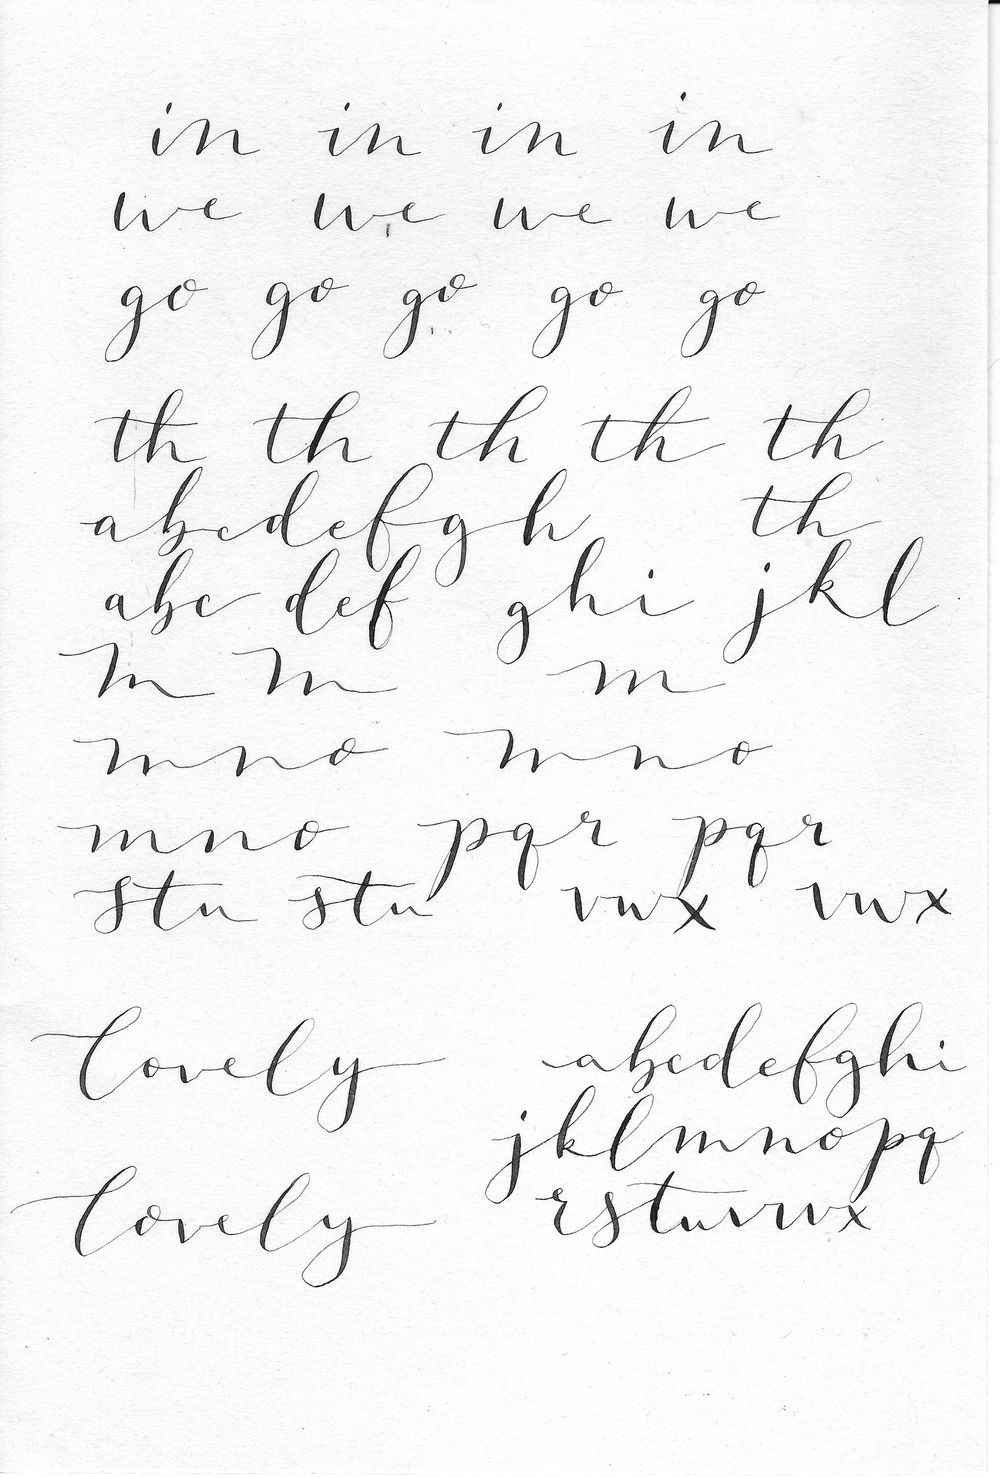 in in in in
we we we we
go go go go go
th th th th th
abcdefgh th
abc def ghi jkl
m m m
mno mno
mno pqr pqr
stu stu vwx vwx
Lovely abcdefghi
jklmnopq
Lovely rstuvwx